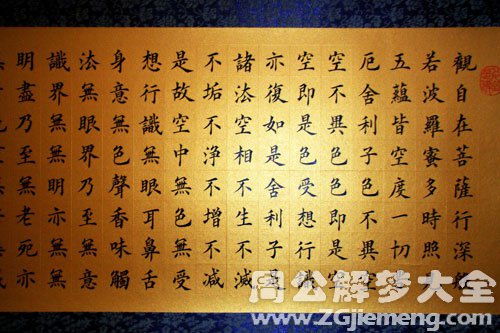 觀自在菩薩行深
若波羅蜜多時照
五蘊皆空度一切
厄舍利子色不異空
空不異色色即是空
空即是色受想行識
亦復如是舍利子是
諸法空相不生不滅
不垢不淨不增不减
是故空中無色無受
想行識無眼耳鼻舌
身意無色聲香味觸
法無眼界乃至無意
識界無無明亦無無
明盡乃至無老死亦
周公解梦大全
www.ZGjiemeng.com